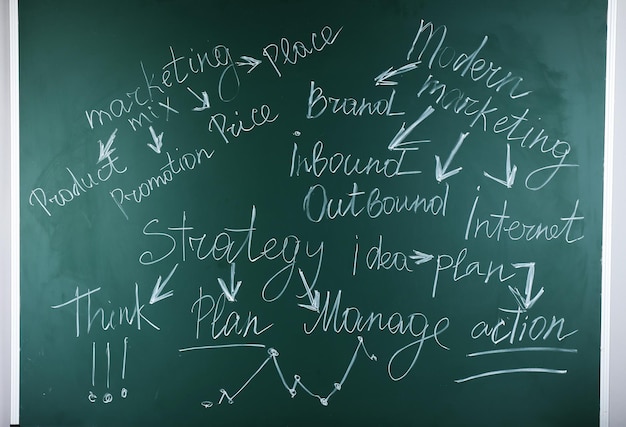 marketing mix → Place
Price
Product
Promotion
Modern marketing
Brand
Inbound
Outbound
Internet
Strategy
idea → plan
Think
!!!
Plan
Manage
action